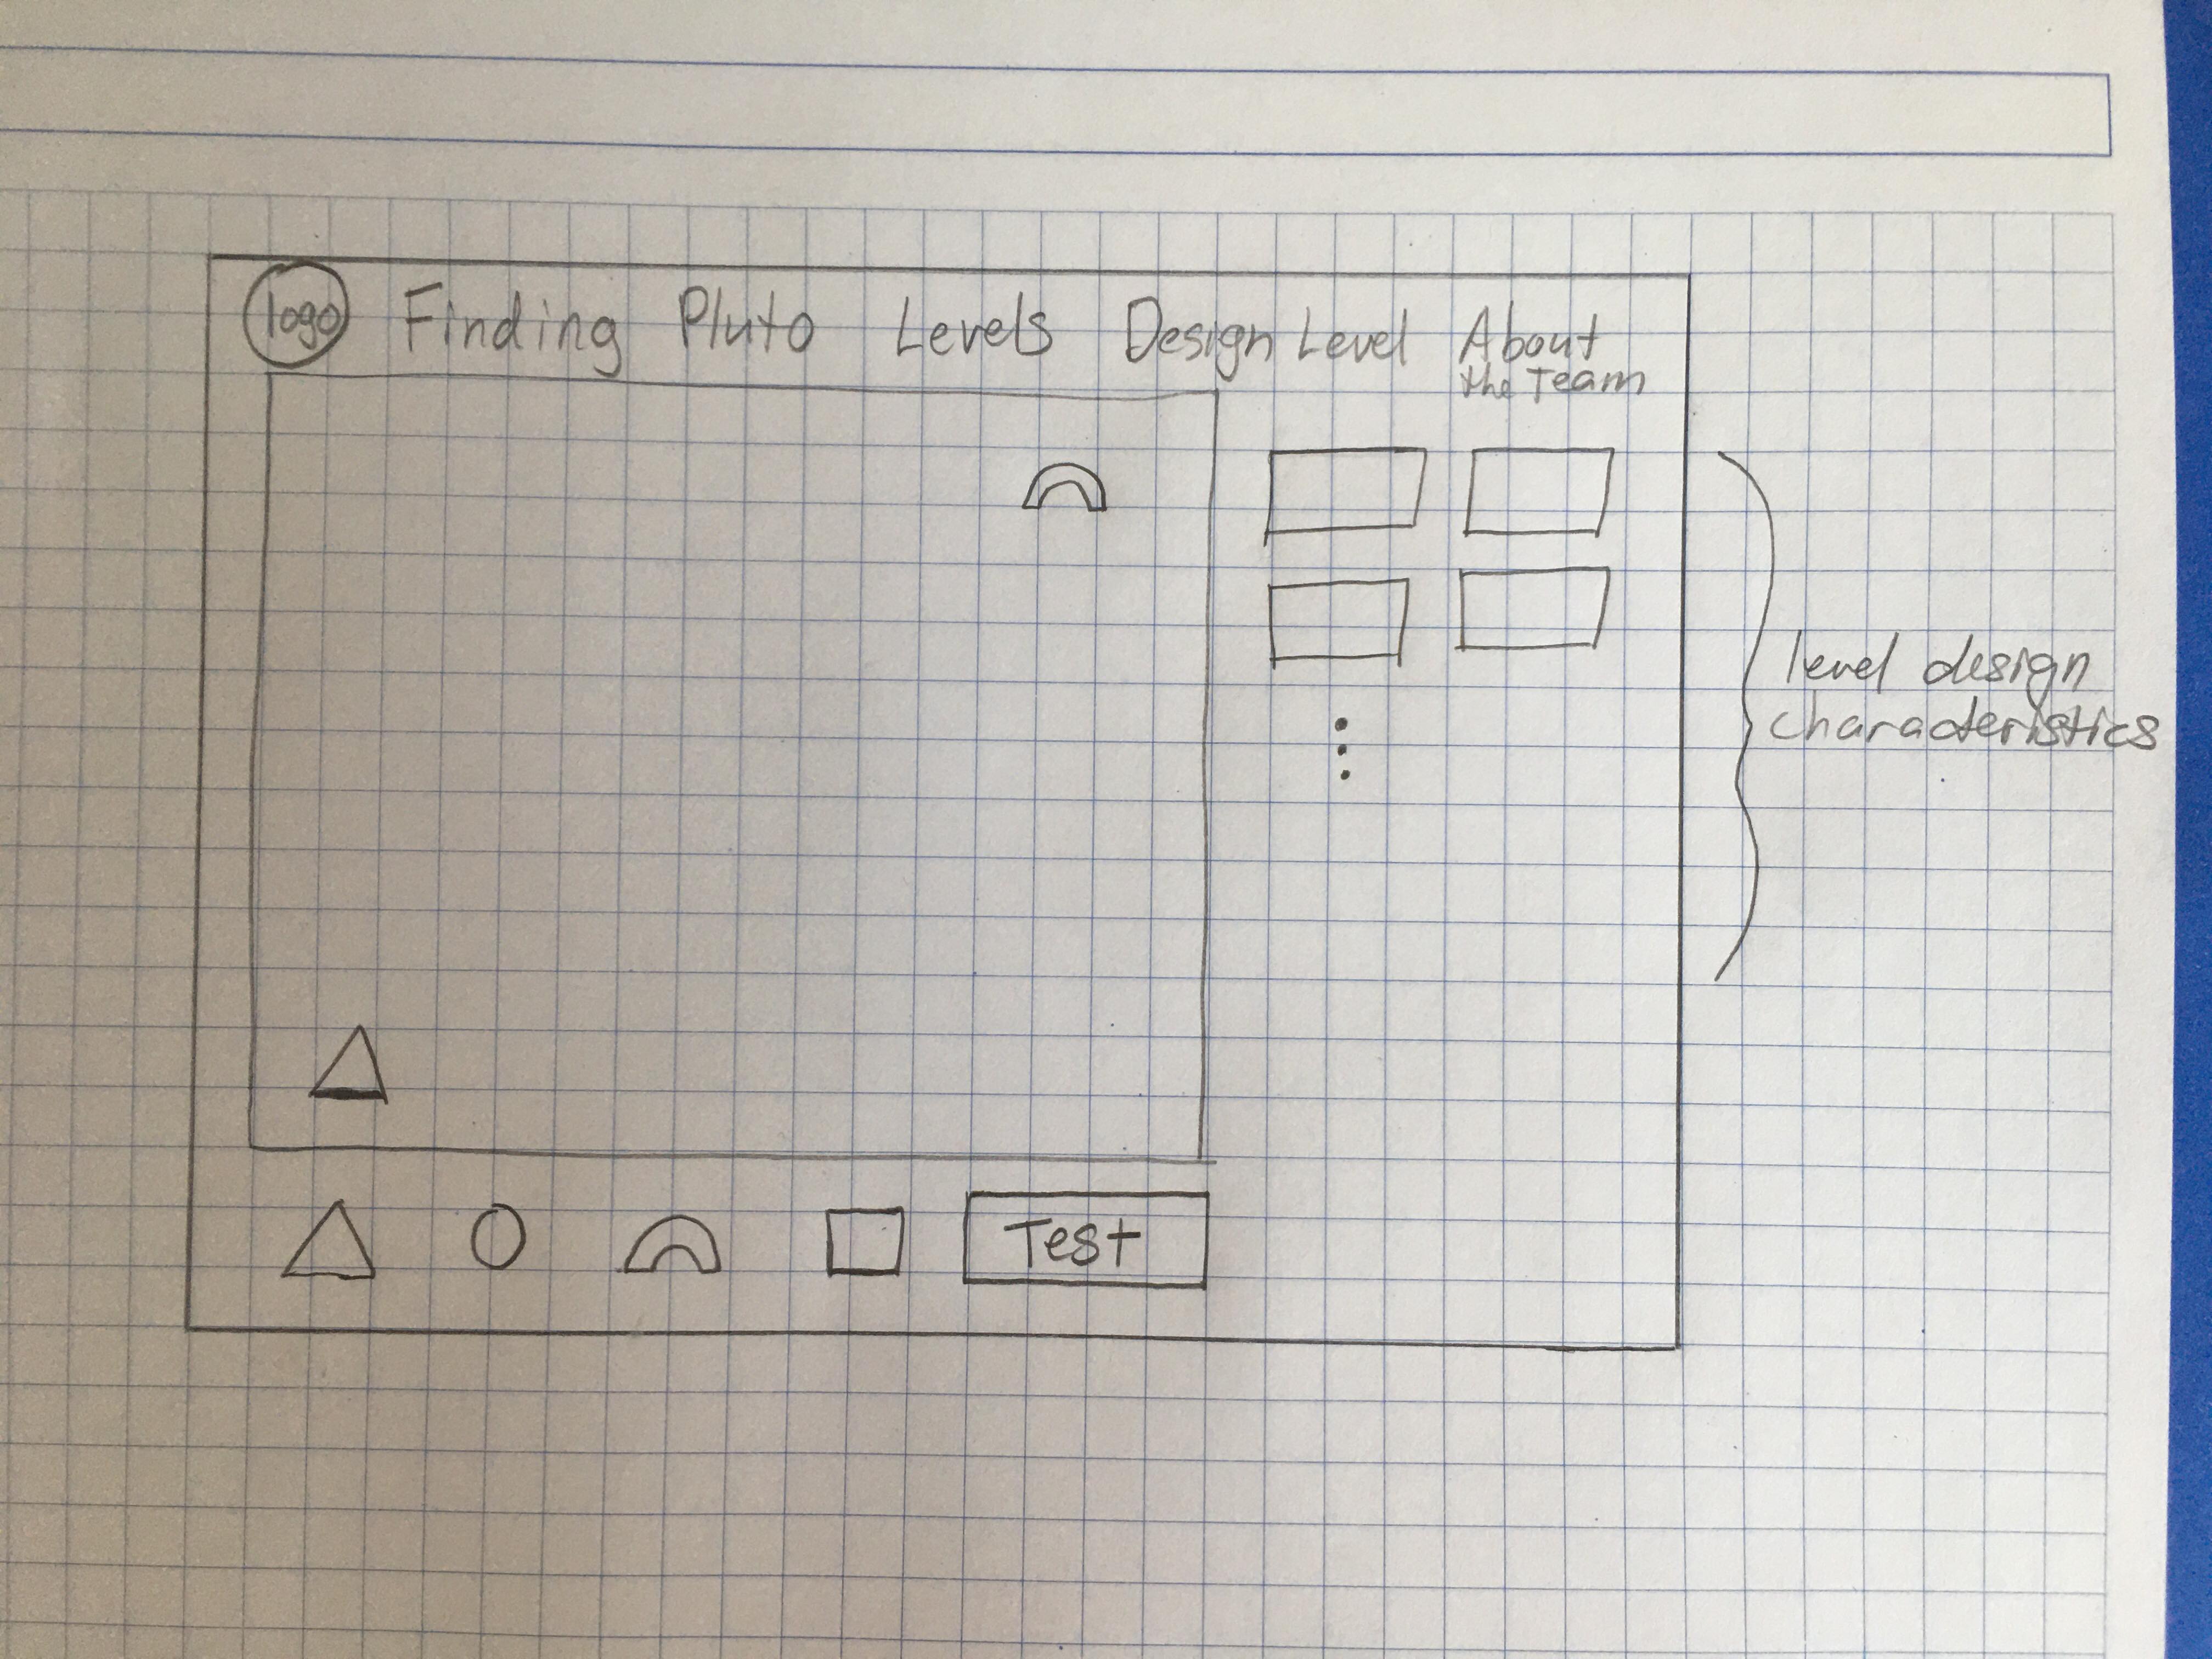 logo Finding Pluto Levels Design Level About
the Team
level design
characteristics
Test